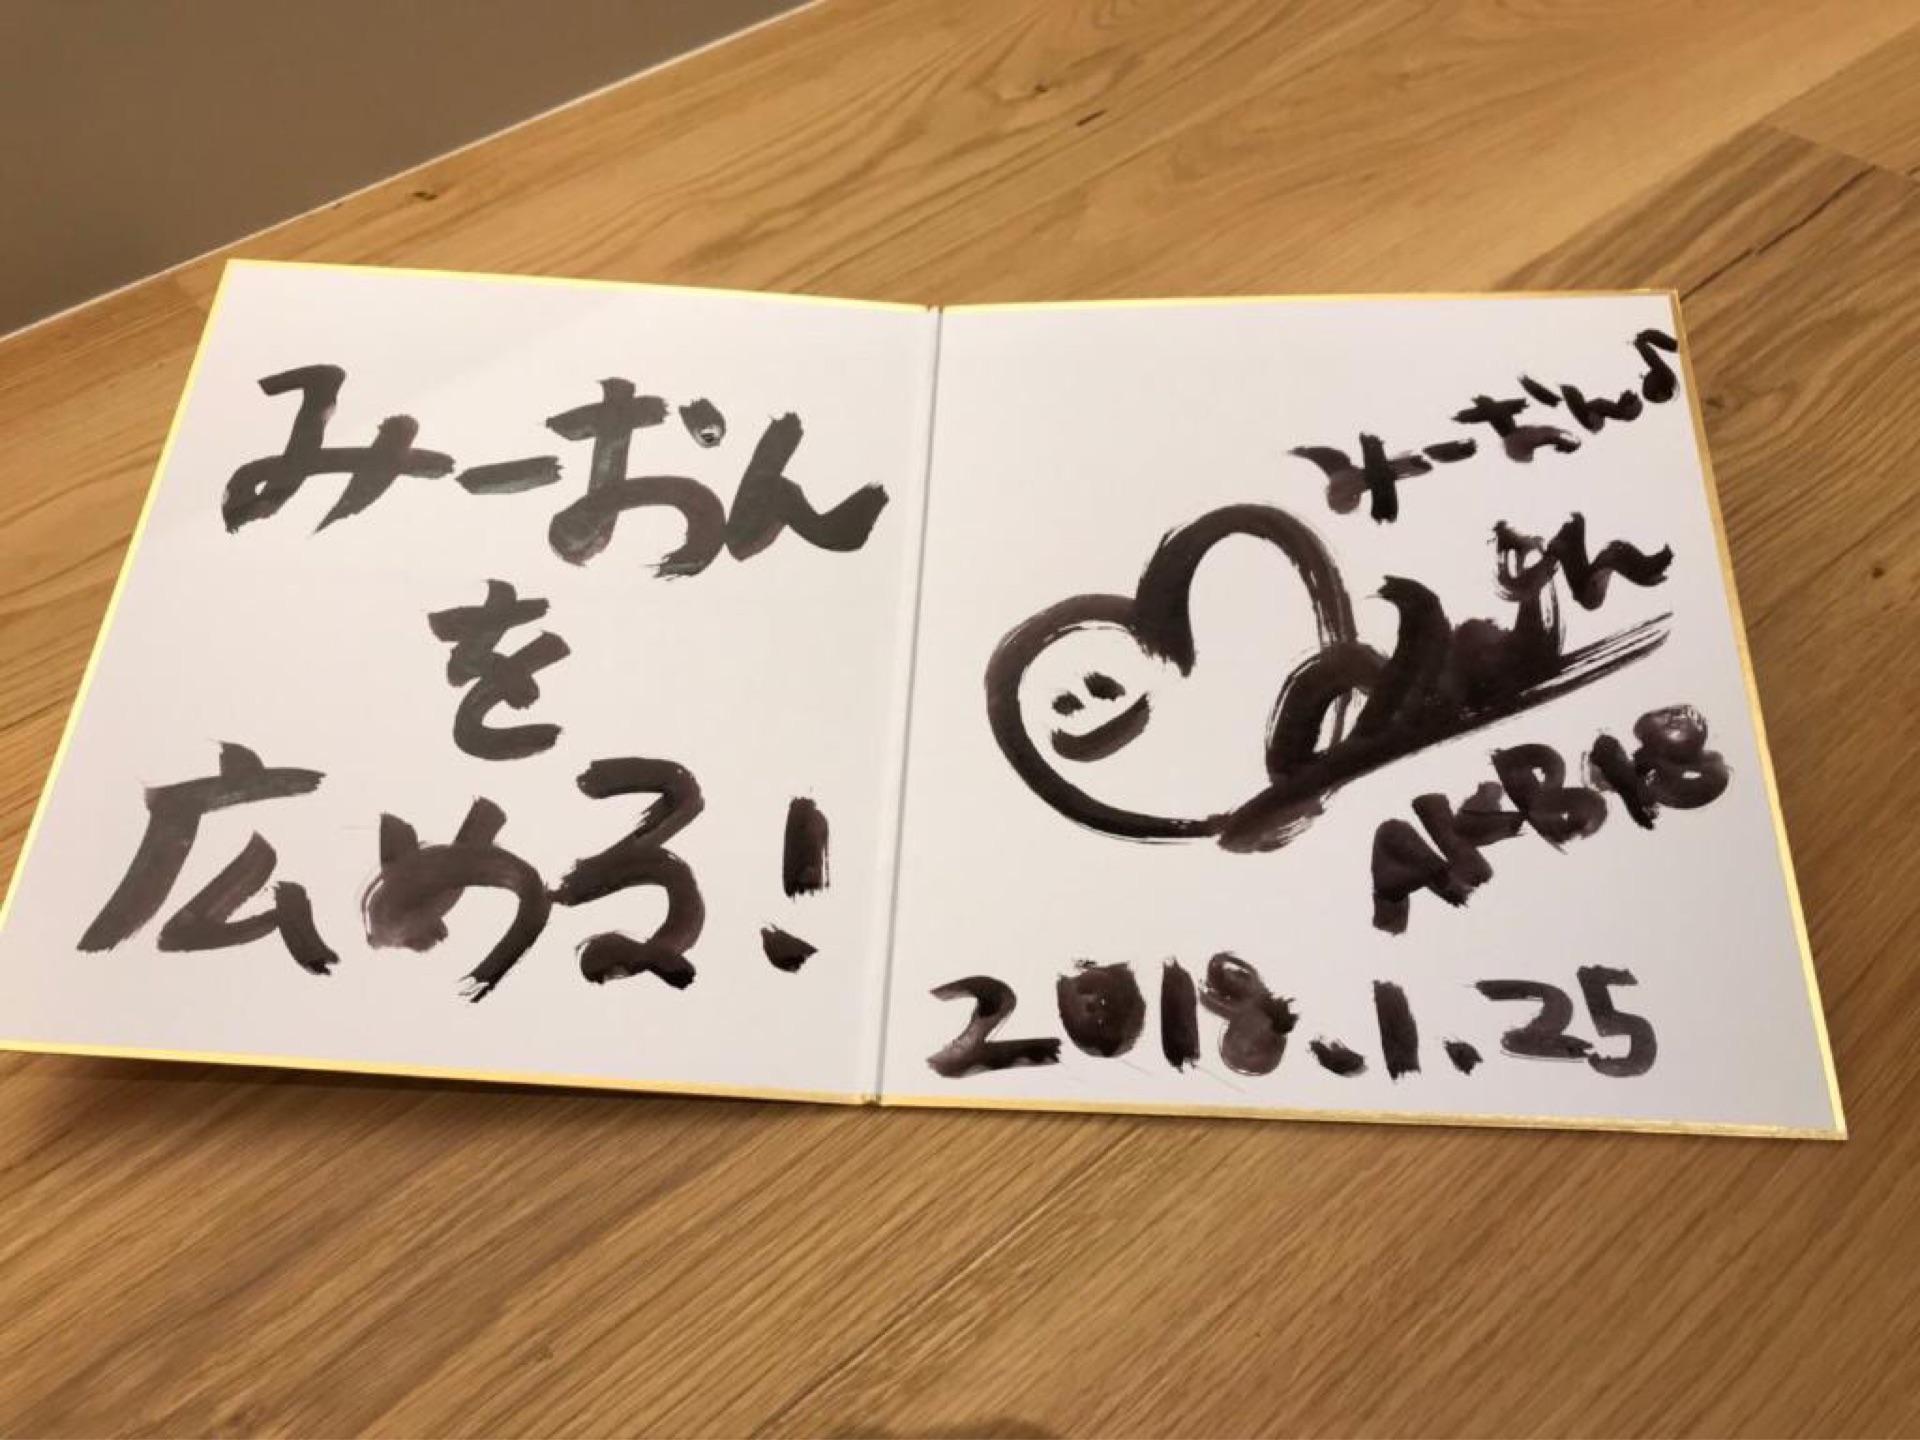 みーおん
を
広める!
みーおん♪
AKB48
2018.1.25